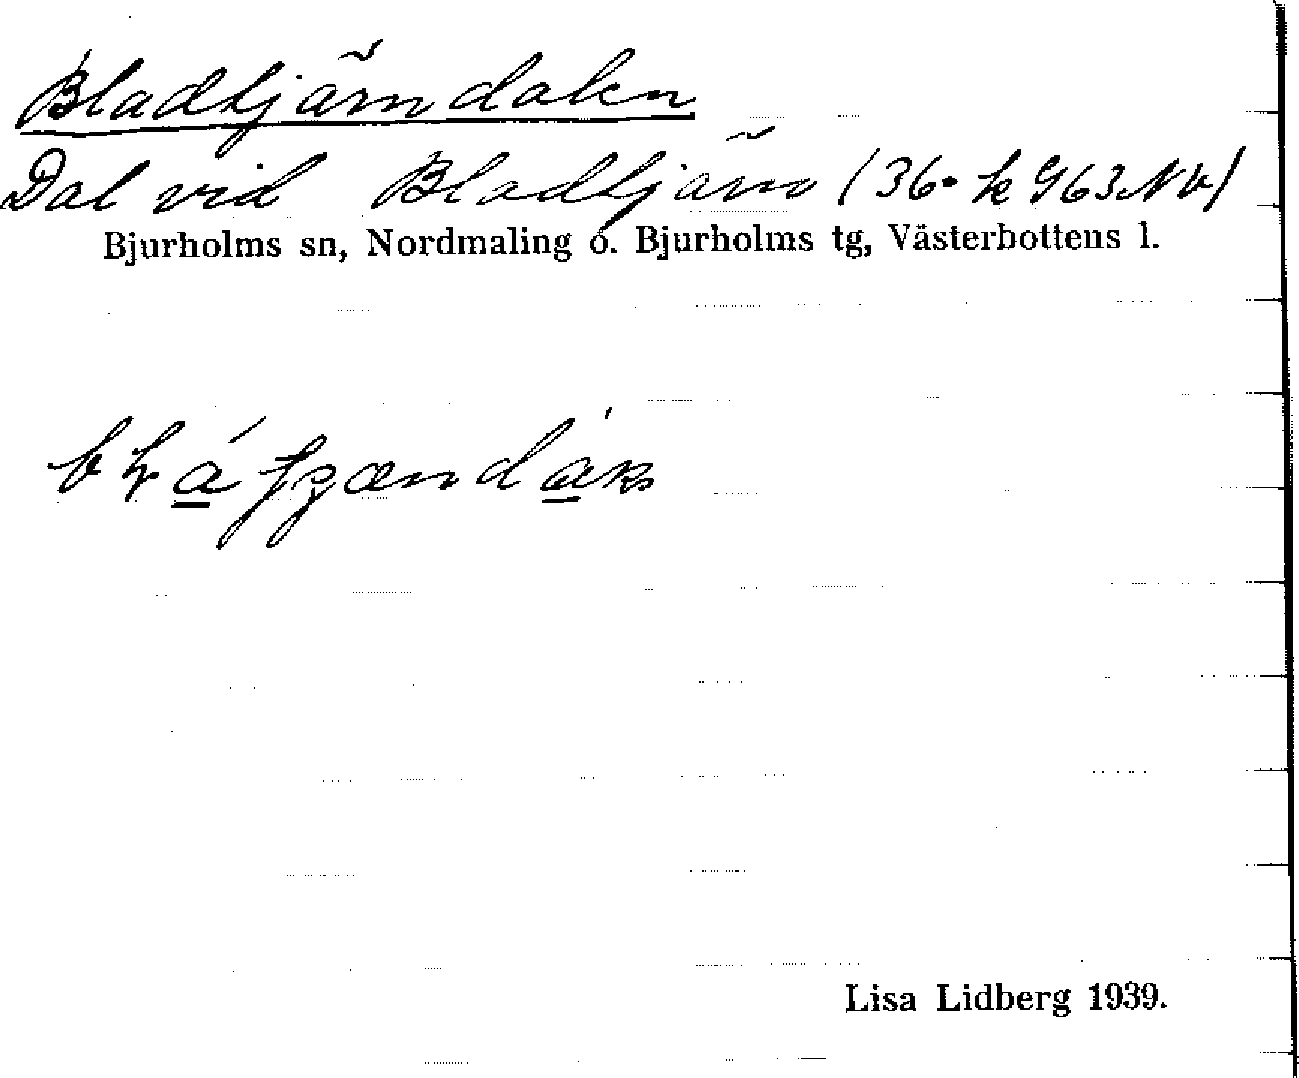 Bladtjärndalen
Dal vid Bladtjärn (36. k 963 NV)
Bjurholms sn, Nordmaling o. Bjurholms tg, Västerbottens l.
Lisa Lidberg 1939.